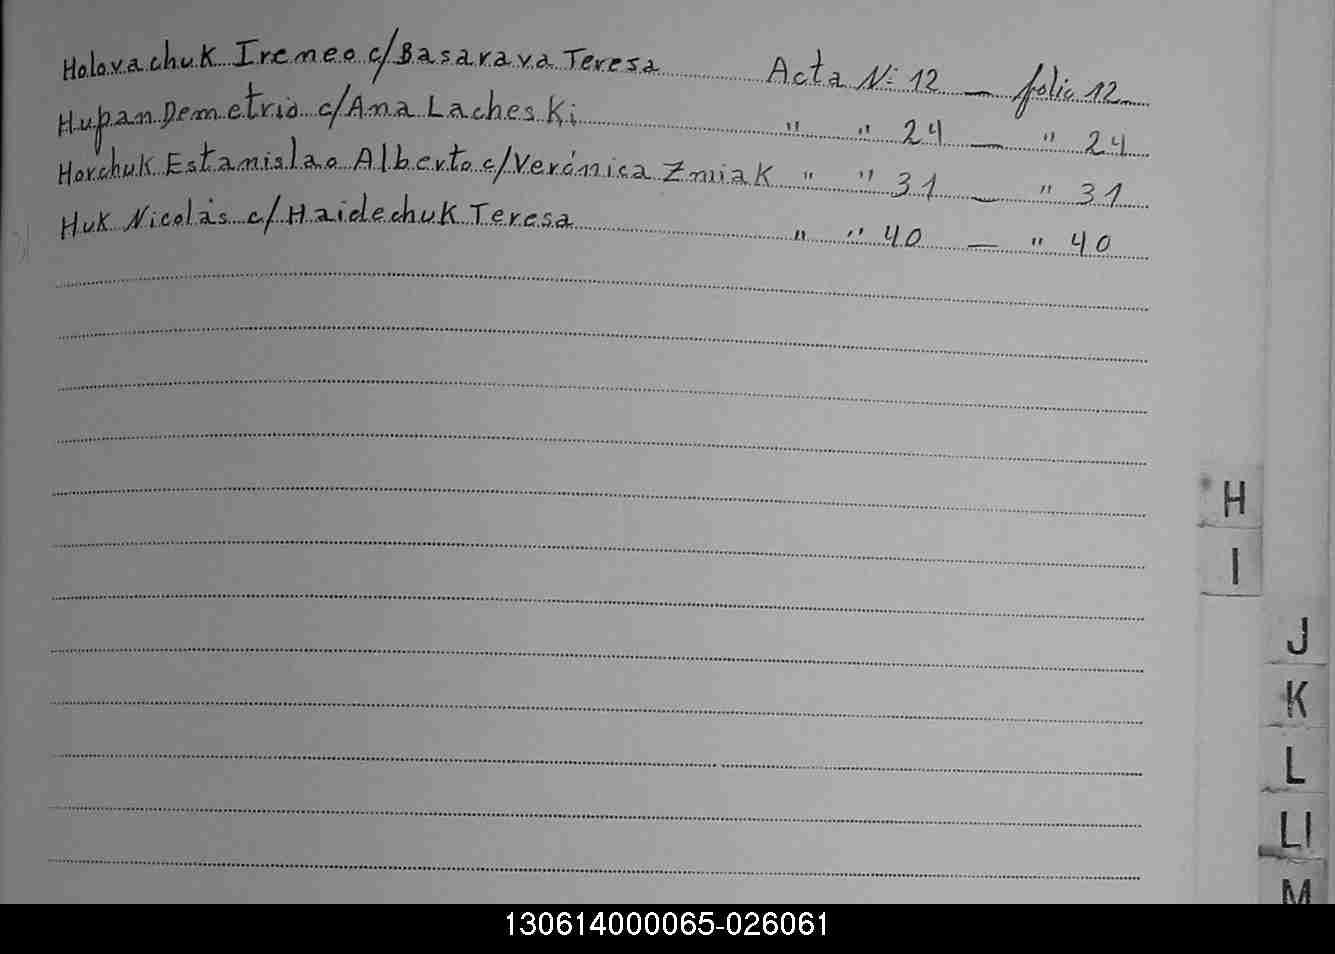 Holovachuk Iremeo c/Basarava Teresa Acta Nº 12 — folio 12
Hupan Demetrio c/Ana Lacheski " " 24 — " 24
Horchuk Estanislao Alberto c/Verónica Zmiak " " 31 — " 31
Huk Nicolás c/Haidechuk Teresa " " 40 — " 40
H
I
J
K
L
Ll
M
130614000065-026061